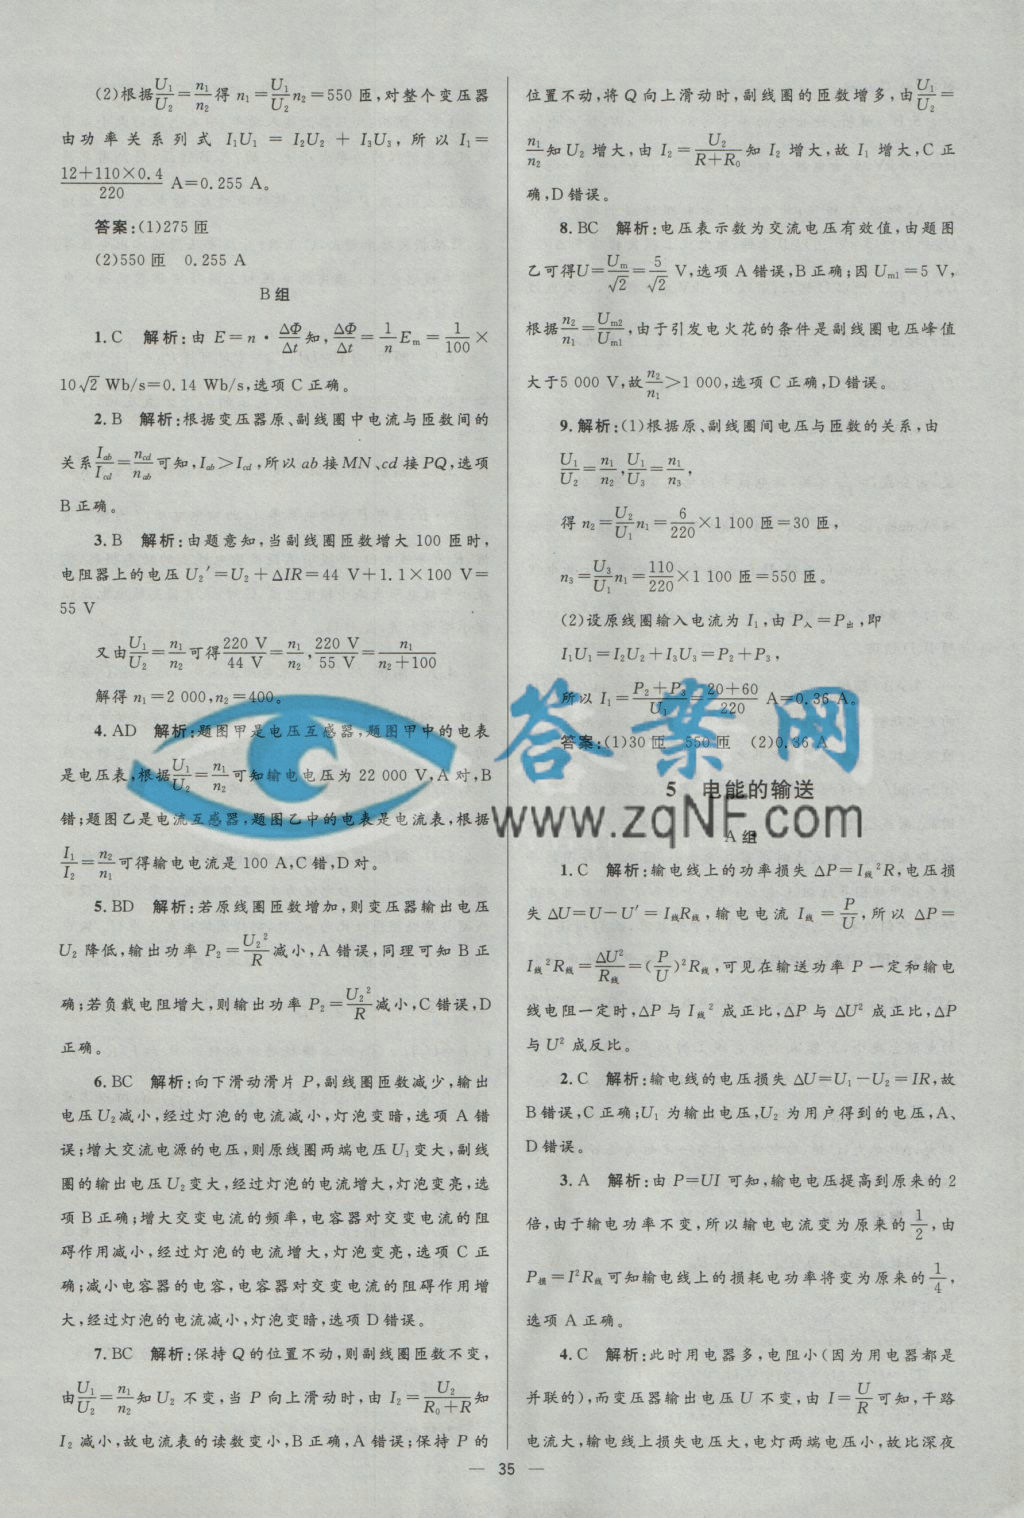 (2)根据U₁/U₂=n₁/n₂得 n₁=U₁/U₂ n₂=550 匝,对整个变压器
由功率关系列式 I₁U₁ = I₂U₂ + I₃U₃, 所以 I₁=
(12+110×0.4)/220 A=0.255 A。
答案:(1)275 匝
(2)550 匝 0.255 A
B 组
1. C 解析:由 E=n·ΔΦ/Δt知,ΔΦ/Δt=1/n Eₘ=1/100×
10√2 Wb/s=0.14 Wb/s,选项 C 正确。
2. B 解析:根据变压器原、副线圈中电流与匝数间的
关系I_ab/I_cd=n_cd/n_ab可知,I_ab>I_cd,所以 ab 接 MN、cd 接 PQ,选项
B 正确。
3. B 解析:由题意知,当副线圈匝数增大 100 匝时,
电阻器上的电压 U₂′=U₂+ΔIR=44 V+1.1×100 V=
55 V
又由U₁/U₂=n₁/n₂可得220 V/44 V=n₁/n₂,220 V/55 V=n₁/(n₂+100)
解得 n₁=2 000,n₂=400。
4. AD 解析:题图甲是电压互感器,题图甲中的电表
是电压表,根据U₁/U₂=n₁/n₂可知输电电压为 22 000 V,A 对,B
错;题图乙是电流互感器,题图乙中的电表是电流表,根据
I₁/I₂=n₂/n₁可得输电电流是 100 A,C 错,D 对。
5. BD 解析:若原线圈匝数增加,则变压器输出电压
U₂ 降低,输出功率 P₂=U₂²/R减小,A 错误,同理可知 B 正
确;若负载电阻增大,则输出功率 P₂=U₂²/R减小,C 错误,D
正确。
6. BC 解析:向下滑动滑片 P,副线圈匝数减少,输出
电压 U₂减小,经过灯泡的电流减小,灯泡变暗,选项 A 错
误;增大交流电源的电压,则原线圈两端电压U₁变大,副线
圈的输出电压 U₂变大,经过灯泡的电流增大,灯泡变亮,选
项 B正确;增大交变电流的频率,电容器对交变电流的阻
碍作用减小,经过灯泡的电流增大,灯泡变亮,选项 C 正
确;减小电容器的电容,电容器对交变电流的阻碍作用增
大,经过灯泡的电流减小,灯泡变暗,选项 D 错误。
7. BC 解析:保持 Q 的位置不动,则副线圈匝数不变,
由U₁/U₂=n₁/n₂知 U₂ 不变,当 P 向上滑动时,由 I₂=U₂/(R₀+R)知
I₂ 减小,故电流表的读数变小,B 正确,A 错误;保持 P 的
位置不动,将 Q 向上滑动时,副线圈的匝数增多,由U₁/U₂=
n₁/n₂知 U₂ 增大,由 I₂=U₂/(R+R₀)知 I₂ 增大,故 I₁ 增大,C 正
确,D 错误。
8. BC 解析:电压表示数为交流电压有效值,由题图
乙可得U=Uₘ/√2=5/√2 V,选项 A 错误,B 正确;因 Uₘ₁=5 V,
根据n₂/n₁=Uₘ₂/Uₘ₁,由于引发电火花的条件是副线圈电压峰值
大于5 000 V,故n₂/n₁>1 000,选项 C 正确,D 错误。
9. 解析:(1)根据原、副线圈间电压与匝数的关系,由
U₁/U₂=n₁/n₂,U₁/U₃=n₁/n₃,
得 n₂=U₂/U₁ n₁=6/220×1 100 匝=30 匝,
n₃=U₃/U₁ n₁=110/220×1 100 匝=550 匝。
(2)设原线圈输入电流为 I₁,由 P入=P出,即
I₁U₁=I₂U₂+I₃U₃=P₂+P₃,
所以 I₁=(P₂+P₃)/U₁=(20+60)/220 A=0.36 A。
答案:(1)30 匝 550 匝 (2)0.36 A
5 电能的输送
A 组
1. C 解析:输电线上的功率损失 ΔP=I线²R,电压损
失 ΔU=U-U′=I线R线,输电电流 I线=P/U,所以 ΔP=
I线²R线=ΔU²/R线=(P/U)²R线,可见在输送功率 P 一定和输电
线电阻一定时,ΔP 与 I线² 成正比,ΔP 与 ΔU² 成正比,ΔP
与 U² 成反比。
2. C 解析:输电线的电压损失 ΔU=U₁-U₂=IR,故
B 错误,C 正确;U₁ 为输出电压,U₂ 为用户得到的电压,A、
D 错误。
3. A 解析:由 P=UI 可知,输电电压提高到原来的 2
倍,由于输电功率不变,所以输电电流变为原来的1/2,由
P损=I²R线可知输电线上的损耗电功率将变为原来的1/4,
选项 A 正确。
4. C 解析:此时用电器多,电阻小(因为用电器都是
并联的),而变压器输出电压 U 不变,由 I=U/R可知,干路
电流大,输电线上损失电压大,电灯两端电压小,故比深夜
— 35 —
答案网
www.zqNF.com